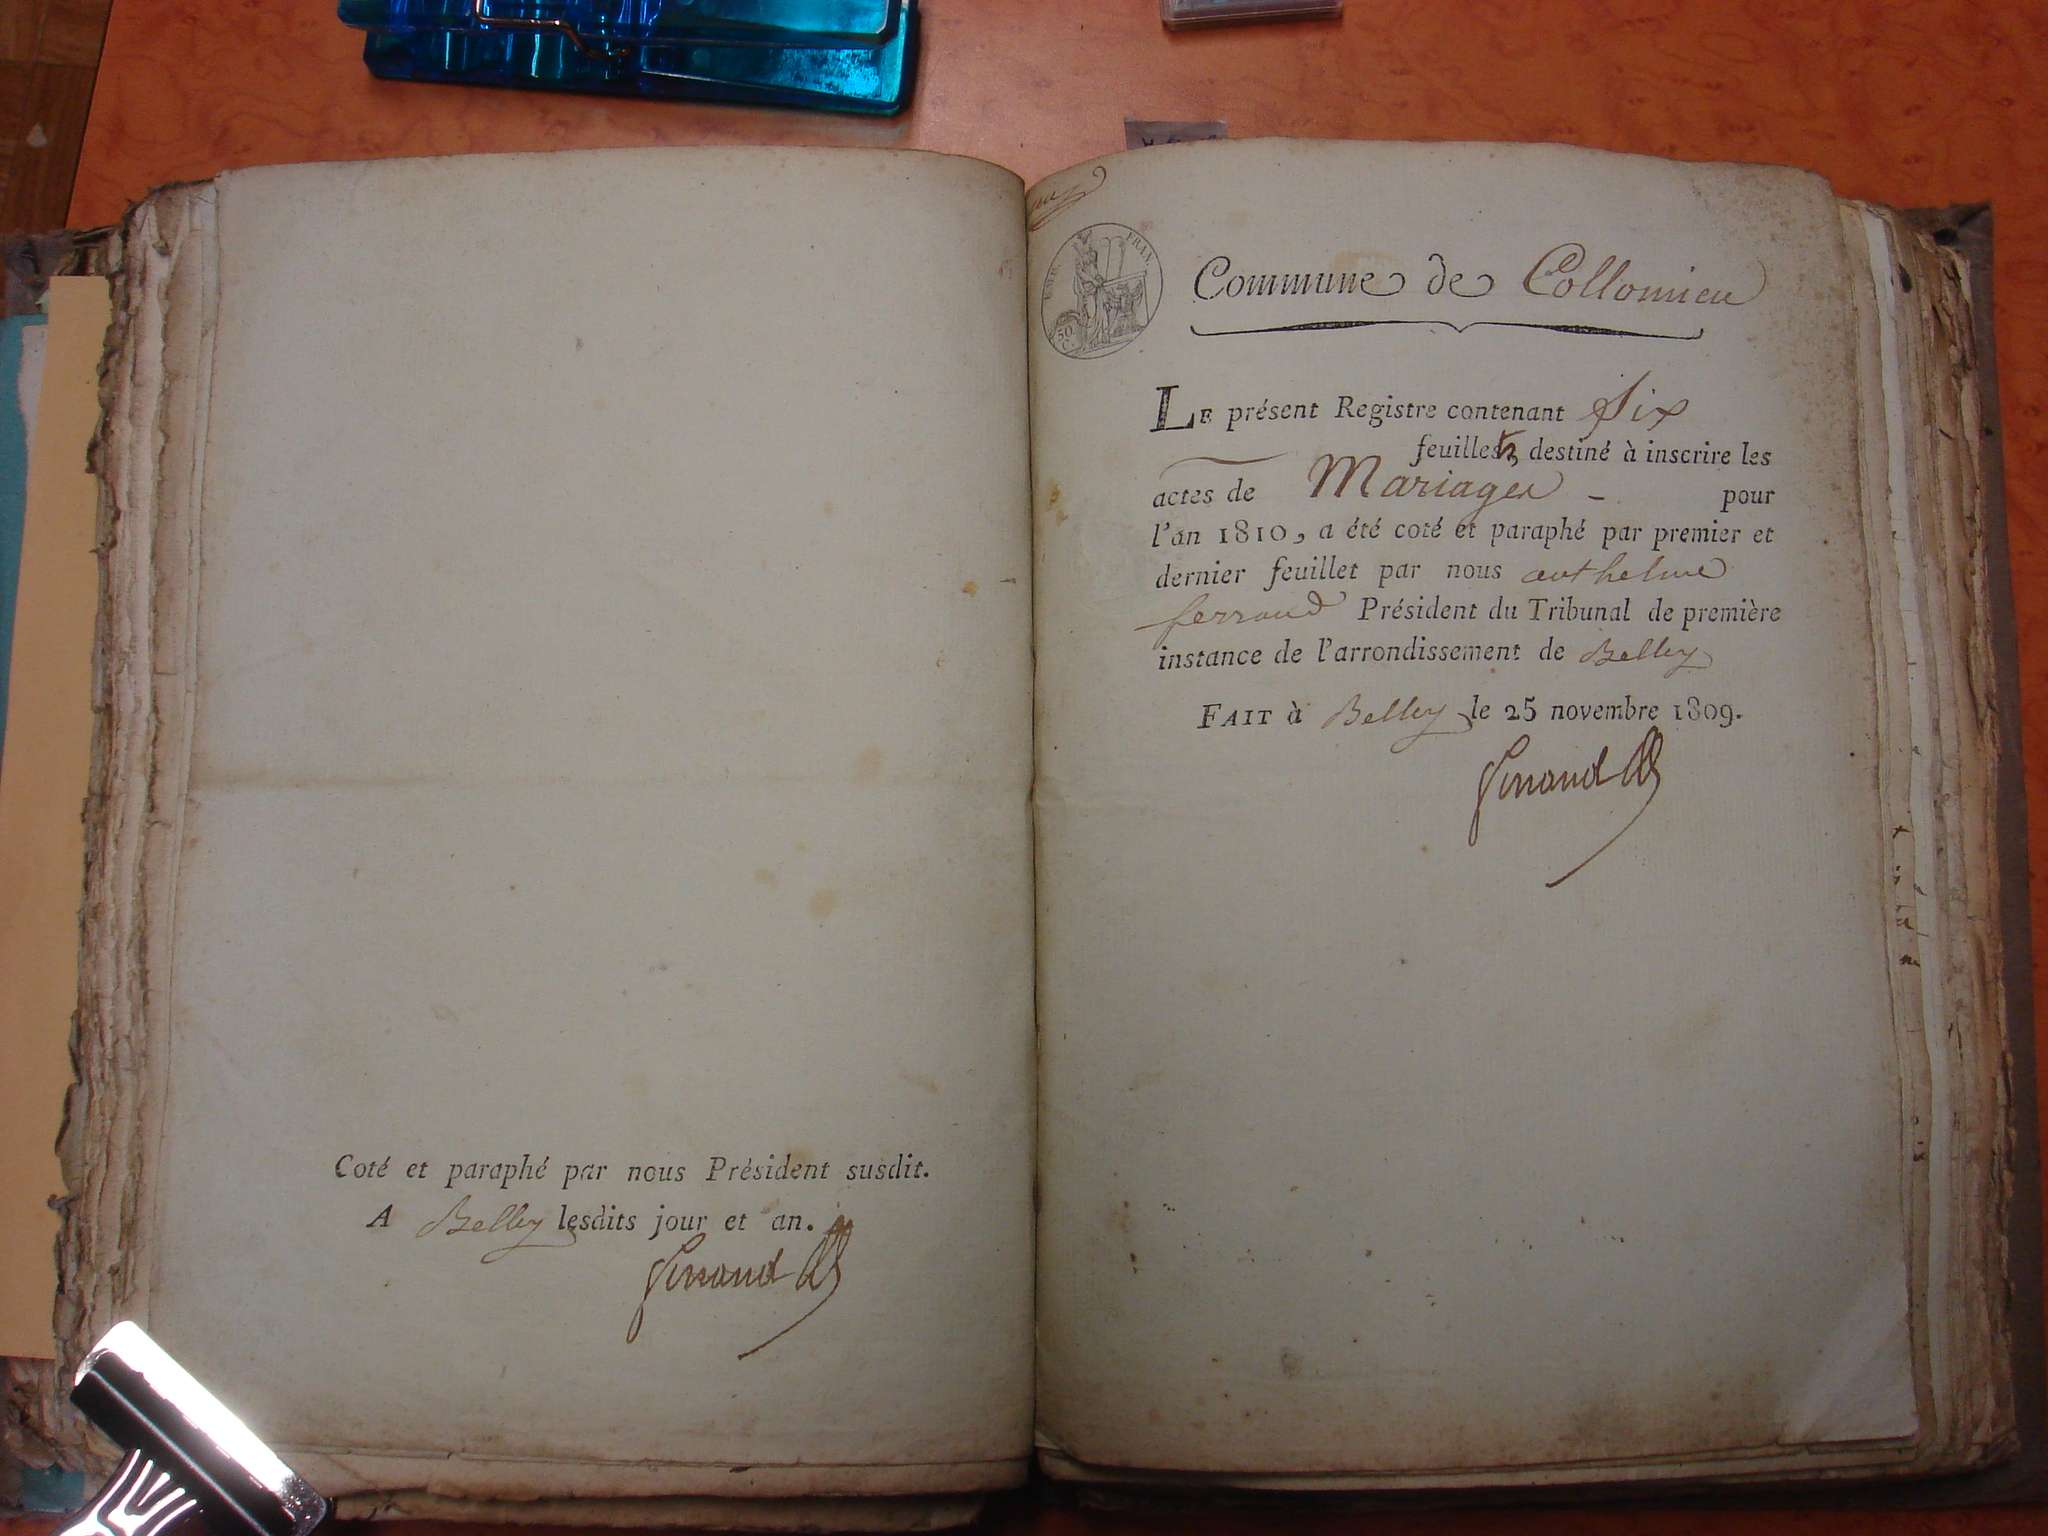 Coté et paraphé par nous Président susdit.
A Belley lesdits jour et an.
ferrand
EMP. FRAN.
50 C.
Commune de Collomieu
LE présent Registre contenant Six
feuillets destiné à inscrire les
actes de Mariages - pour
l'an 1810, a été coté et paraphé par premier et
dernier feuillet par nous anthelme
ferrand Président du Tribunal de première
instance de l'arrondissement de Belley
FAIT à Belley le 25 novembre 1809.
ferrand